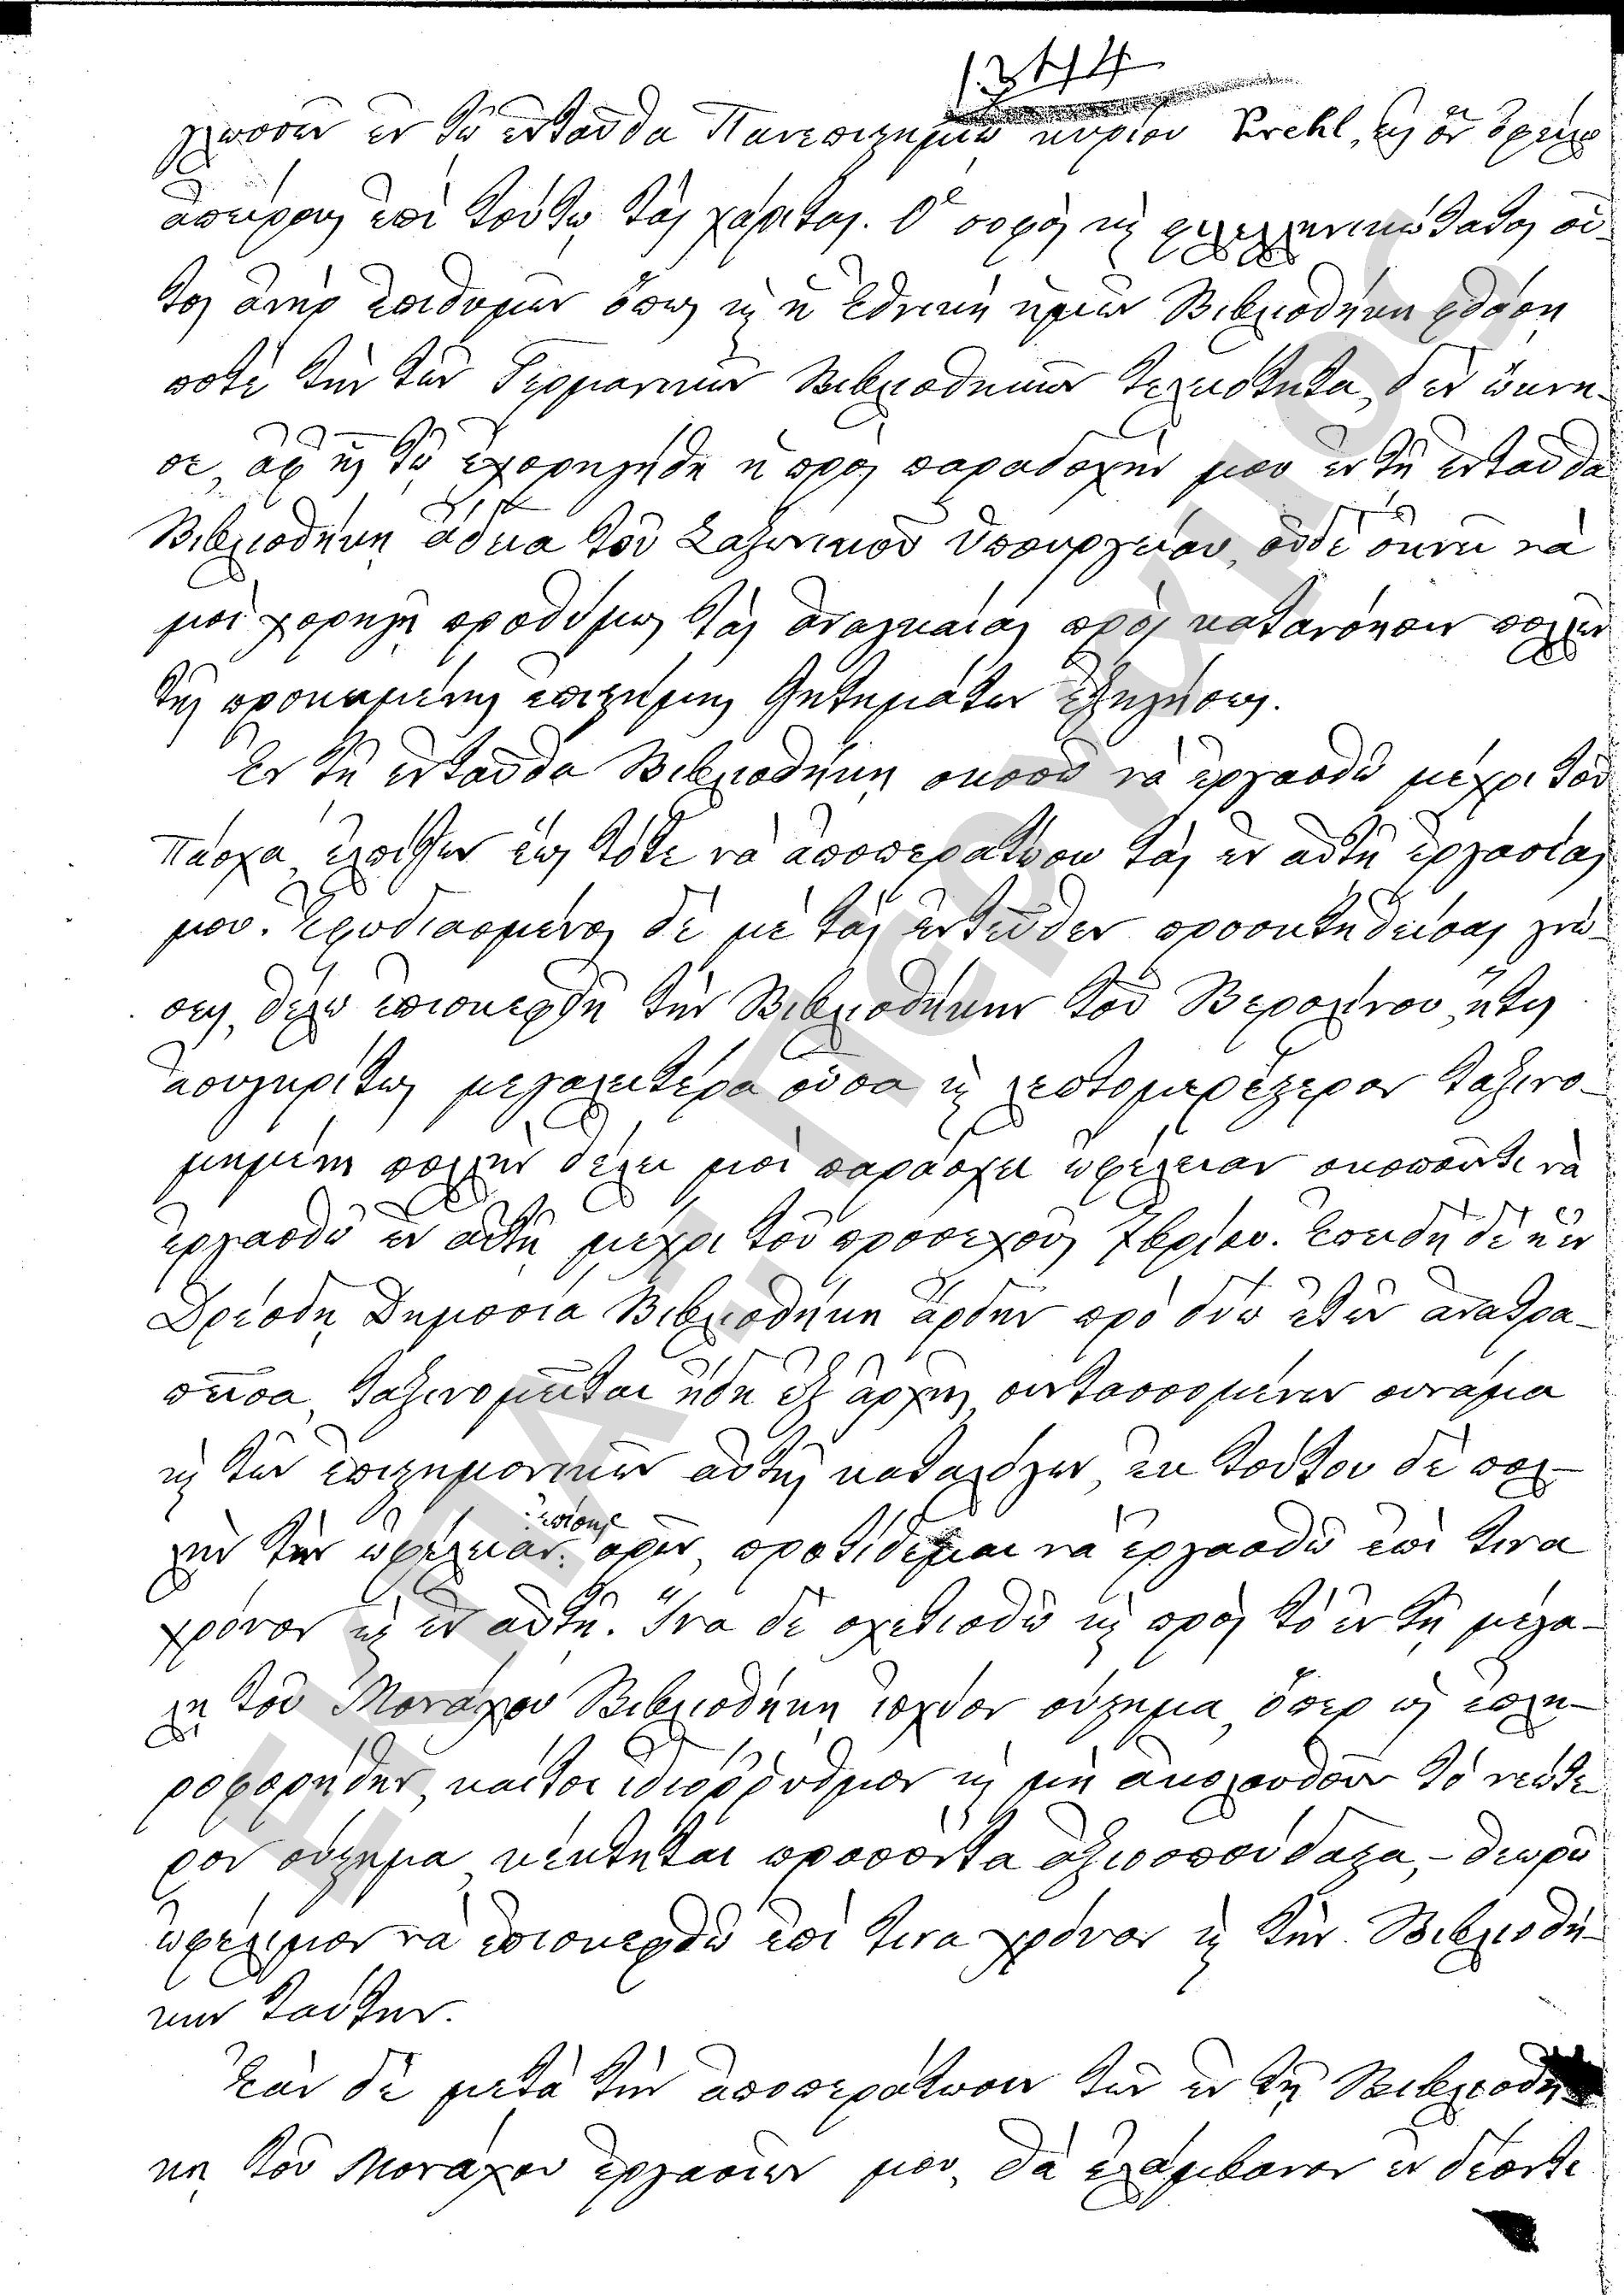 1344
γλωσσῶν ἐν τῷ ἐνταῦθα Πανεπιστημίῳ κυρίου Krehl, εἰς ὃν ὀφείλω
ἀπείρους ἐπὶ τούτῳ τὰς χάριτας. Ὁ σοφὸς καὶ φιλελληνικώτατος οὗ-
τος ἀνὴρ ἐπιθυμῶν ὅπως καὶ ἡ Ἐθνικὴ ἡμῶν Βιβλιοθήκη φθάσῃ
ποτὲ τὴν τῶν Γερμανικῶν Βιβλιοθηκῶν τελειότητα, δὲν ὤκνη-
σε, ἀφ' ἧς τῷ ἐχορηγήθη ἡ πρὸς παραδοχήν μου ἐν τῇ ἐνταῦθα
Βιβλιοθήκῃ ἄδεια τοῦ Σαξωνικοῦ Ὑπουργείου, οὐδὲ ὀκνεῖ νὰ
μοὶ χορηγῇ προθύμως τὰς ἀναγκαίας πρὸς κατανόησιν πολλῶν
τῆς προκειμένης ἐπιστήμης ζητημάτων ἐξηγήσεις.
Ἐν τῇ ἐνταῦθα Βιβλιοθήκῃ σκοπῶ νὰ ἐργασθῶ μέχρι τοῦ
Πάσχα, ἐλπίζων ἕως τότε νὰ ἀποπερατώσω τὰς ἐν αὐτῇ ἐργασίας
μου. Ἐφωδιασμένος δὲ μὲ τὰς ἐντεῦθεν προσκτηθείσας γνώ-
σεις, θέλω ἐπισκεφθῆ τὴν Βιβλιοθήκην τοῦ Βερολίνου, ἥτις
ἀσυγκρίτως μεγαλειτέρα οὖσα καὶ λεπτομερέστερον ταξινο-
μημένη πολλὴν θέλει μοὶ παράσχει ὠφέλειαν σκοποῦντι νὰ
ἐργασθῶ ἐν αὐτῇ μέχρι τοῦ προσεχοῦς 7βρίου. Ἐπειδὴ δὲ ἡ ἐν
Δρέσδῃ Δημοσία Βιβλιοθήκη ἄρδην πρὸ δύω ἐτῶν ἀνατρα-
πεῖσα, ταξινομεῖται ἤδη ἐξ ἀρχῆς, συντασσομένων συνάμα
καὶ τῶν ἐπιστημονικῶν αὐτῆς καταλόγων, ἐκ τούτου δὲ πολ-
λὴν τὴν ὠφέλειαν ἐπίσης ὁρῶν, προτίθεμαι νὰ ἐργασθῶ ἐπί τινα
χρόνον καὶ ἐν αὐτῇ. Ἵνα δὲ σχετισθῶ καὶ πρὸς τὸ ἐν τῇ μεγά-
λῃ τοῦ Μονάχου Βιβλιοθήκῃ ἰσχῦον σύστημα, ὅπερ ὡς ἐπλη-
ροφορήθην, καίτοι ἰδιόρρυθμον καὶ μὴ ἀκολουθοῦν τὸ νεώτε-
ρον σύστημα, κέκτηται προσόντα ἀξιοσπούδαστα, – θεωρῶ
ὠφέλιμον νὰ ἐπισκεφθῶ ἐπί τινα χρόνον καὶ τὴν Βιβλιοθή-
κην ταύτην.
Ἐὰν δὲ μετὰ τὴν ἀποπεράτωσιν τῶν ἐν τῇ Βιβλιοθή-
κῃ τοῦ Μονάχου ἐργασιῶν μου, θὰ ἐλάμβανον ἐν δέοντι